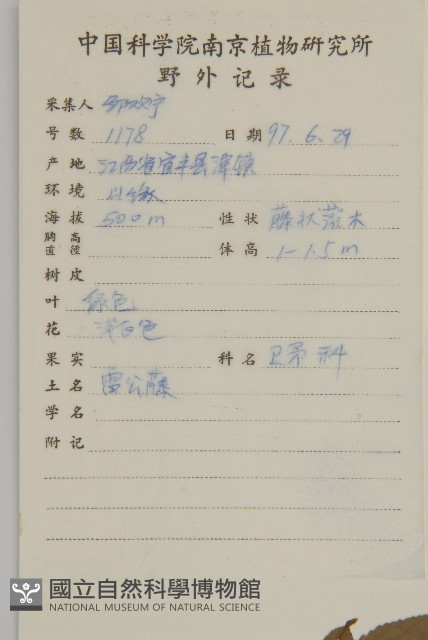 中国科学院南京植物研究所
野外记录
采集人 邹
号数 1178 日期 97.6.29
产地 江西省宜丰县潭镇
环境 山
海拔 500m 性状 藤状灌木
胸高直径 体高 1-1.5m
树皮
叶 绿色
花 浅白色
果实 科名 卫矛科
土名 雷公藤
学名
附记
國立自然科學博物館
NATIONAL MUSEUM OF NATURAL SCIENCE